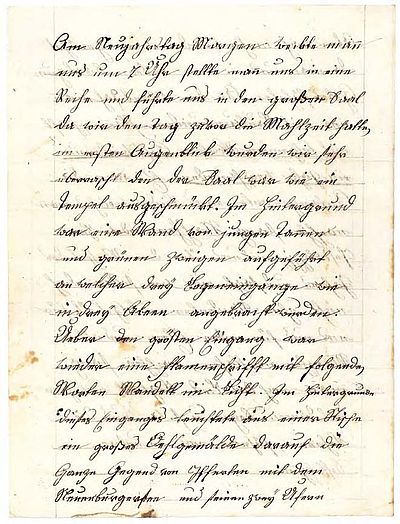 Am Neujahrstag Morgen weckte man
uns um 7 Uhr stellte man uns in eine
Reihe und führte uns in den großen Saal
da wir den Tag zuvor die Mahlzeit hatten,
im ersten Augenblick wurden wir sehr
überrascht den der Saal war wie ein
Tempel ausgeschmückt. Im Hintergrund
war eine Wand von jungen Tannen
und grünen Zweigen aufgeführt
an welcher drey Bogeneingänge wie
in drey angebracht wurden.
Ueber den großten Eingang war
wieder eine Flamenschrifft mit folgenden
Worten Wandelt im Licht. Im Hintergrunde
dieses Einganges leuchtete aus einer Nische
ein großes Oehlgemälde darauf die
Ganze Gegend von Ifferten mit dem
Neuenburgersee und seinen zwey Ufern